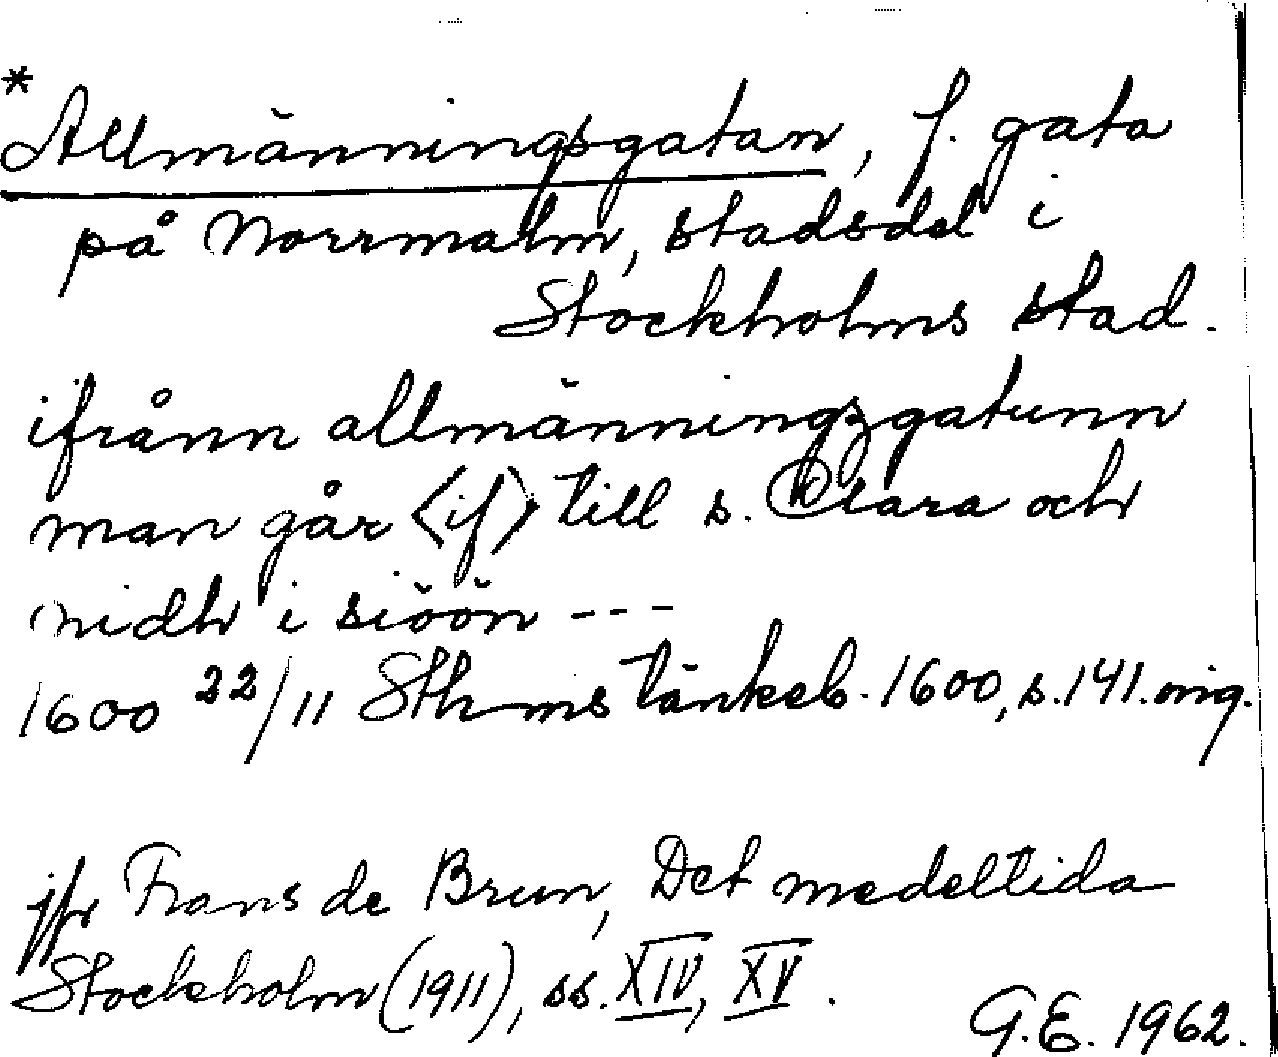 *
Allmänningsgatan, f. gata
på Norrmalm, stadsdel i
Stockholms stad.
ifrånn allmänningzgatunn
man går <if> till s. Clara och
nidh i siöön ---
1600 22/11 Sthms tänkeb. 1600, s. 141. orig.
jfr Frans de Brun, Det medeltida
Stockholm (1911), ss. XIV, XV.
G.E. 1962.